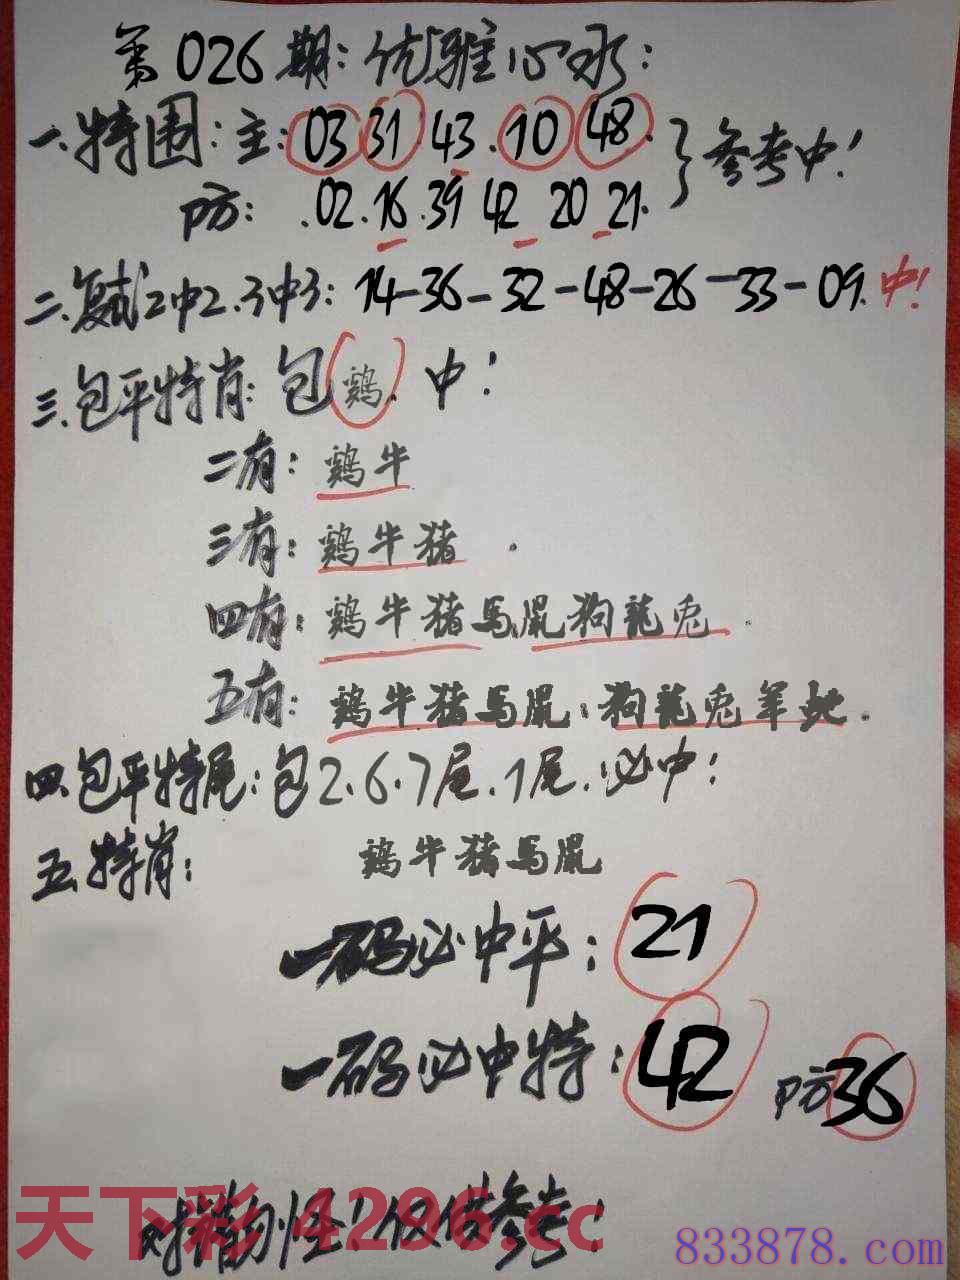 第026期:优雅心水:
一.特围:主:03 31.43.10 48.
防:.02.16.39 42 20 21.
}参考中!
二.复试2中2.3中3:14-36-32-48-26-33-09.中!
三.包平特肖:包鷄.中!
二有:鷄牛
三有:鷄牛猪.
四有:鷄牛猪馬鼠狗龍兎.
五有:鷄牛猪馬鼠:狗龍兎羊蛇.
四.包平特尾:包2.6.7尾.1尾.必中:
五.特肖:鷄牛猪馬鼠
一码必中平:21
一码必中特:42 防36
对错勿怪!仅供参考!
天下彩4296.cc
833878.com